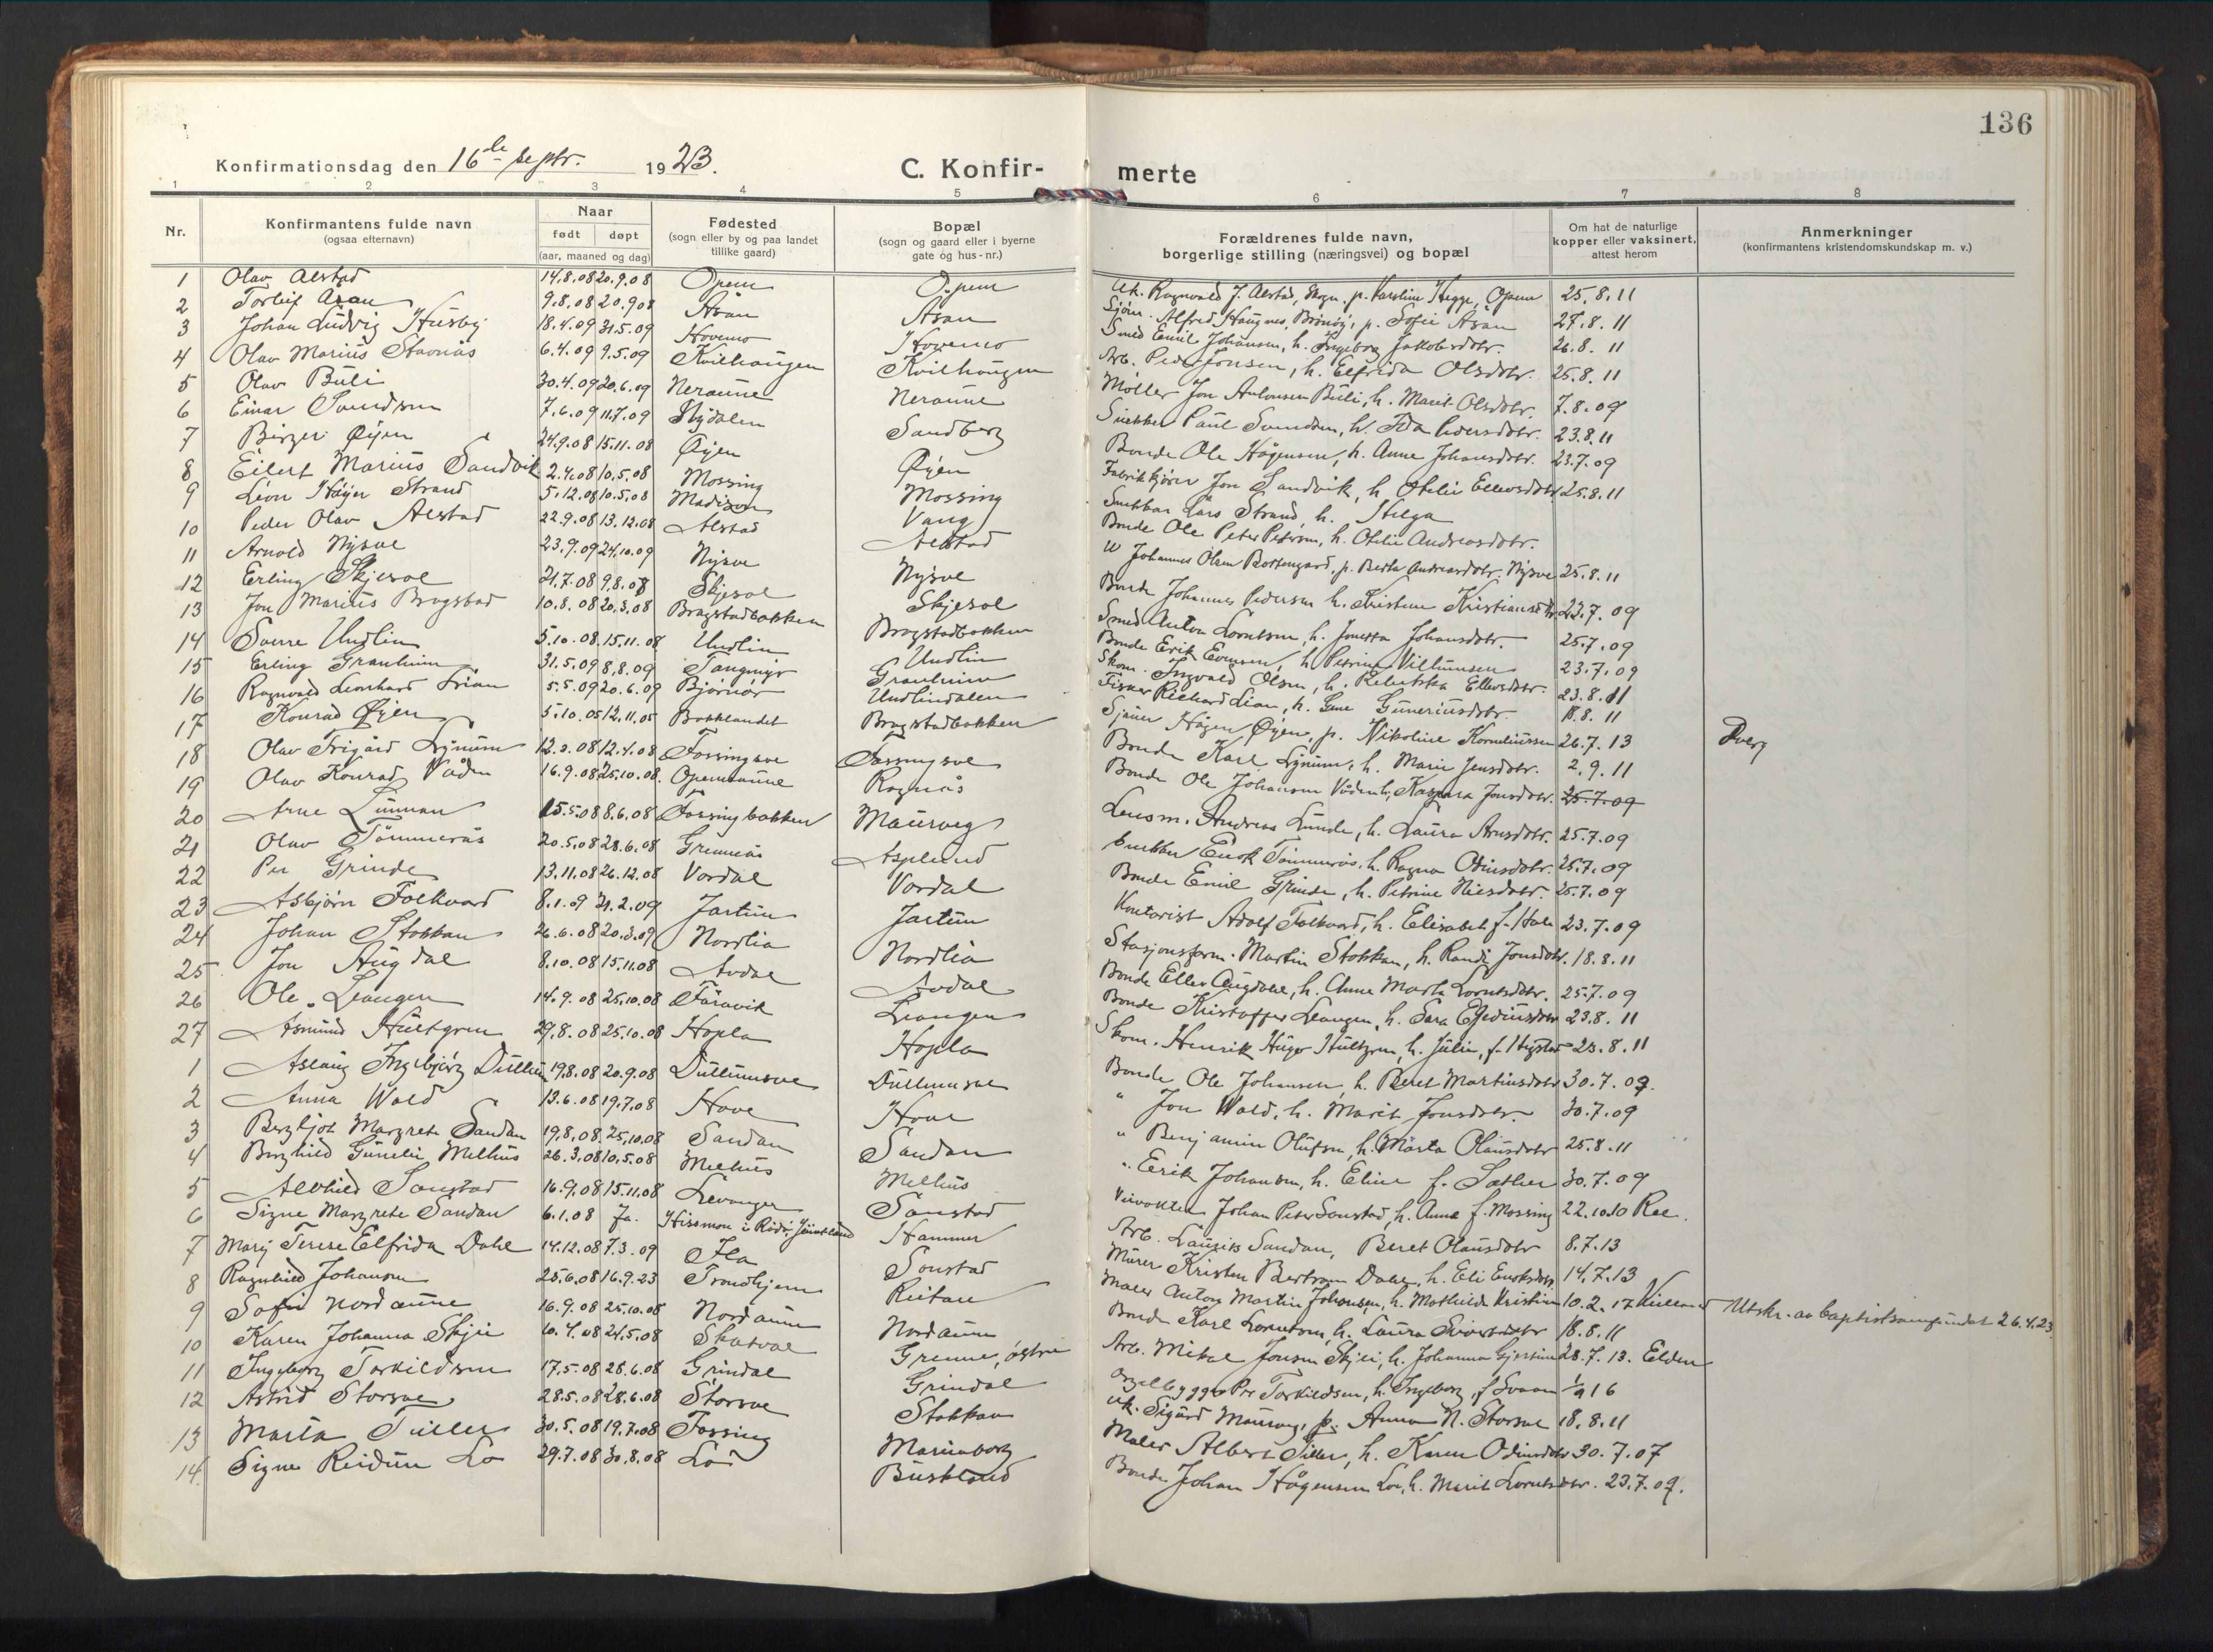 136
Konfirmationsdag den 16de septr. 1923. C. Konfir- merte
1 2 3 4 5 6 7 8
Nr. Konfirmantens fulde navn (ogsaa efternavn) Naar født døpt (aar, maaned og dag) Fødested (sogn eller by og paa landet tillike gaard) Bopæl (sogn og gaard eller i byerne gate og hus-nr.) Forældrenes fulde navn, borgerlige stilling (næringsvei) og bopæl Om hat de naturlige kopper eller vaksinert, attest herom Anmerkninger (konfirmantens kristendomskundskap m. v.)
1 Olav Alstad 14.8.08 20.9.08 Opem Opem Uk. Ragnvald J. Alstad, Skogn. p. Karoline Hegge, Opem 25.8.11
2 Torleif Asan 9.8.08 20.9.08 Åsan Asan Sjøm. Alfred Haugnes, Brønøy, p. Sofie Asan 27.8.11
3 Johan Ludvig Husby 18.4.09 31.5.09 Hovemo Hovemo Smed Emil Johansen, h. Ingeborg Jakobsdtr. 26.8.11
4 Olav Marius Stavnås 6.4.09 9.5.09 Kvilhaugen Kvilhaugen Arb. Peder Jonsen, h. Elfrida Olsdtr. 25.8.11
5 Olav Buli 30.4.09 20.6.09 Neraune Neraune Møller Jon Antonsen Buli, h. Marit Olsdtr. 7.8.09
6 Einar Svendsen 7.6.09 11.7.09 Sandberg Snekker Paul Svendsen, h. Ida Pedersdtr. 23.8.11
7 Birger Øyen 24.9.08 15.11.08 Øyen Øyen Bonde Ole Hågensen, h. Anne Johansdtr. 23.7.09
8 Eilert Marius Sandvik 2.4.08 10.5.08 Mossing Mossing Fabrikkjører Jon Sandvik, h. Otelie Ellevsdtr. 25.8.11
9 Leon Høyer Strand 5.12.08 10.5.08 Madison Vang Snekker Lars Strand, h. Helga
10 Peder Olav Alstad 22.9.08 13.12.08 Alstad Alstad Bonde Ole Peter Petersen, h. Otelie Andreasdtr.
11 Arnold Nysve 23.9.09 24.10.09 Nysve Nysve Johannes Olsen Bottengard, p. Berta Andreasdtr. Nysve 25.8.11
12 Erling Skjesol 21.7.08 9.8.08 Skjesol Skjesol Bonde Johannes Pedersen h. Kristine Kristiansdtr. 23.7.09
13 Jon Marius Bragstad 10.8.08 20.9.08 Bragstadbakken Bragstadbakken Smed Anton Lorntsen, h. Jonetta Johansdtr. 25.7.09
14 Sverre Undlin 5.10.08 15.11.08 Undlin Undlin Bonde Erik Evensen, h. Petrine Villumsen 23.7.09
15 Erling Granheim 31.5.09 8.8.09 Tangmyr Granheim Skom. Ingvald Olsen, h. Rebekka Ellevsdtr. 23.8.11
16 Ragnvald Leonhard Lian 5.5.09 20.6.09 Bjørnør Undlindalen Fisker Richard Lian, h. Gune Guneriusdtr. 18.8.11
17 Konrad Øyen 5.10.05 12.11.05 Bakklandet Bragstadbakken Sjauer Hågen Øyen, p. Nikoline Korneliussen 26.7.13 Dverg
18 Olav Trigård Lynum 12.2.08 12.4.08 Fossingsve Fossingsve Bonde Karl Lynum, h. Marie Jensdtr. 2.9.11
19 Olav Konrad Våden 16.9.08 25.10.08. Opemsaune Ragnås Bonde Ole Johansen Våden, h. Kaspara Jonsdtr. 25.7.09
20 Arne Lunnan 15.5.08 8.6.08 Fossingbakken Maurveg Lensm. Andreas Lunde, h. Laura Arnsdtr. 25.7.09
21 Olav Tømmerås 20.5.08 28.6.08 Grennås Asplund Snekker Enok Tømmerås, h. Ragna Odinsdtr. 25.7.09
22 Per Grinde 13.11.08 26.12.08 Vordal Vordal Bonde Emil Grinde, h. Petrine Nilsdatr. 25.7.09
23 Asbjørn Folkvord 8.1.09 21.2.09 Jartun Jartun Kontorist Adolf Folkvord, h. Elisabet f. Hale 23.7.09
24 Johan Stokkan 26.6.08 20.3.09 Nordlia Nordlia Stasjonsform. Martin Stokkan, h. Randi Jonsdtr. 18.8.11
25 Jon Augdal 8.10.08 15.11.08 Avdal Avdal Bonde Ellev Augdal, h. Anne Marta Lorntsdtr. 25.7.09
26 Ole Leangen 14.9.08 25.10.08 Faravik Leangen Bonde Kristoffer Leangen, h. Sara Egediusdtr 23.8.11
27 Asmund Hultgren 29.8.08 25.10.08 Hopla Hopla Skom. Henrik Hugo Hultgren, h. Julie, f. Hystad 23.8.11
1 Aslaug Ingebjørg Dullum 19.8.08 20.9.08 Dullumsve Dullumsve Bonde Ole Johansen, h. Beret Martinsdtr 30.7.09.
2 Anna Wold 13.6.08 19.7.08 Hove Hove " Jon Wold, h. Marit Jonsdtr. 30.7.09
3 Bergljot Margrete Sandan 19.8.08. 25.10.08 Sandan Sandan " Benjamin Olufsen, h. Marta Olausdtr 25.8.11
4 Borghild Gunelie Melhus 26.3.08 10.5.08 Melhus Melhus " Erik Johansen, h. Eline f. Sæther 30.7.09
5 Alvhild Sonstad 16.9.08 15.11.08 Levanger Sonstad Veivokter Johan Peter Sonstad, h. Anna f. Mossing 22.10.10
6 Signe Margrete Sandan 6.1.08 Ja. Hissmon i Rödö, Jämtland Hammer Arb. Lauritz Sandan, Beret Olausdtr 8.7.13
7 Mary Terese Elfrida Dahl 14.12.08 7.3.09 Ila Sonstad Murer Kristen Bertram Dahl, h. Eli Enoksdtr 14.7.13
8 Ragnhild Johansen 25.6.08 16.9.23 Trondhjem Reitan Maler Anton Martin Johansen, h. Mathilde Kristine 10.2.17 Utskr. av baptistsamfundet 26.4.23
9 Sofie Nordaune 16.9.08 25.10.08 Nordaune Nordaune Bonde Karl Lorntsen, h. Laura Sivertsdtr 18.8.11
10 Karen Johanna Skjei 10.4.08 24.5.08 Skatval Grenne, østre Arb. Mikal Jonsen Skjei, h. Johanna Gjertine 28.7.13. Elden
11 Ingeborg Torkildsen 17.5.08 28.6.08 Grindal Grindal Orgelbygger Per Torkildsen, h. Ingeborg, f. Svaan 1/9 16
12 Astrid Storsve 28.5.08 28.6.08 Storsve Stokkan Uk. Sigurd Maurveg, p. Anna N. Storsve 18.8.11
13 Marta Tiller 30.5.08 19.7.08 Fossing Marienborg Maler Albert Tiller, h. Karen Odinsdtr 30.7.07
14 Signe Reidun Lo 29.7.08 30.8.08 Lo Buskland Bonde Johan Hågensen Lo, h. Marit Lorntsdtr. 23.7.09.